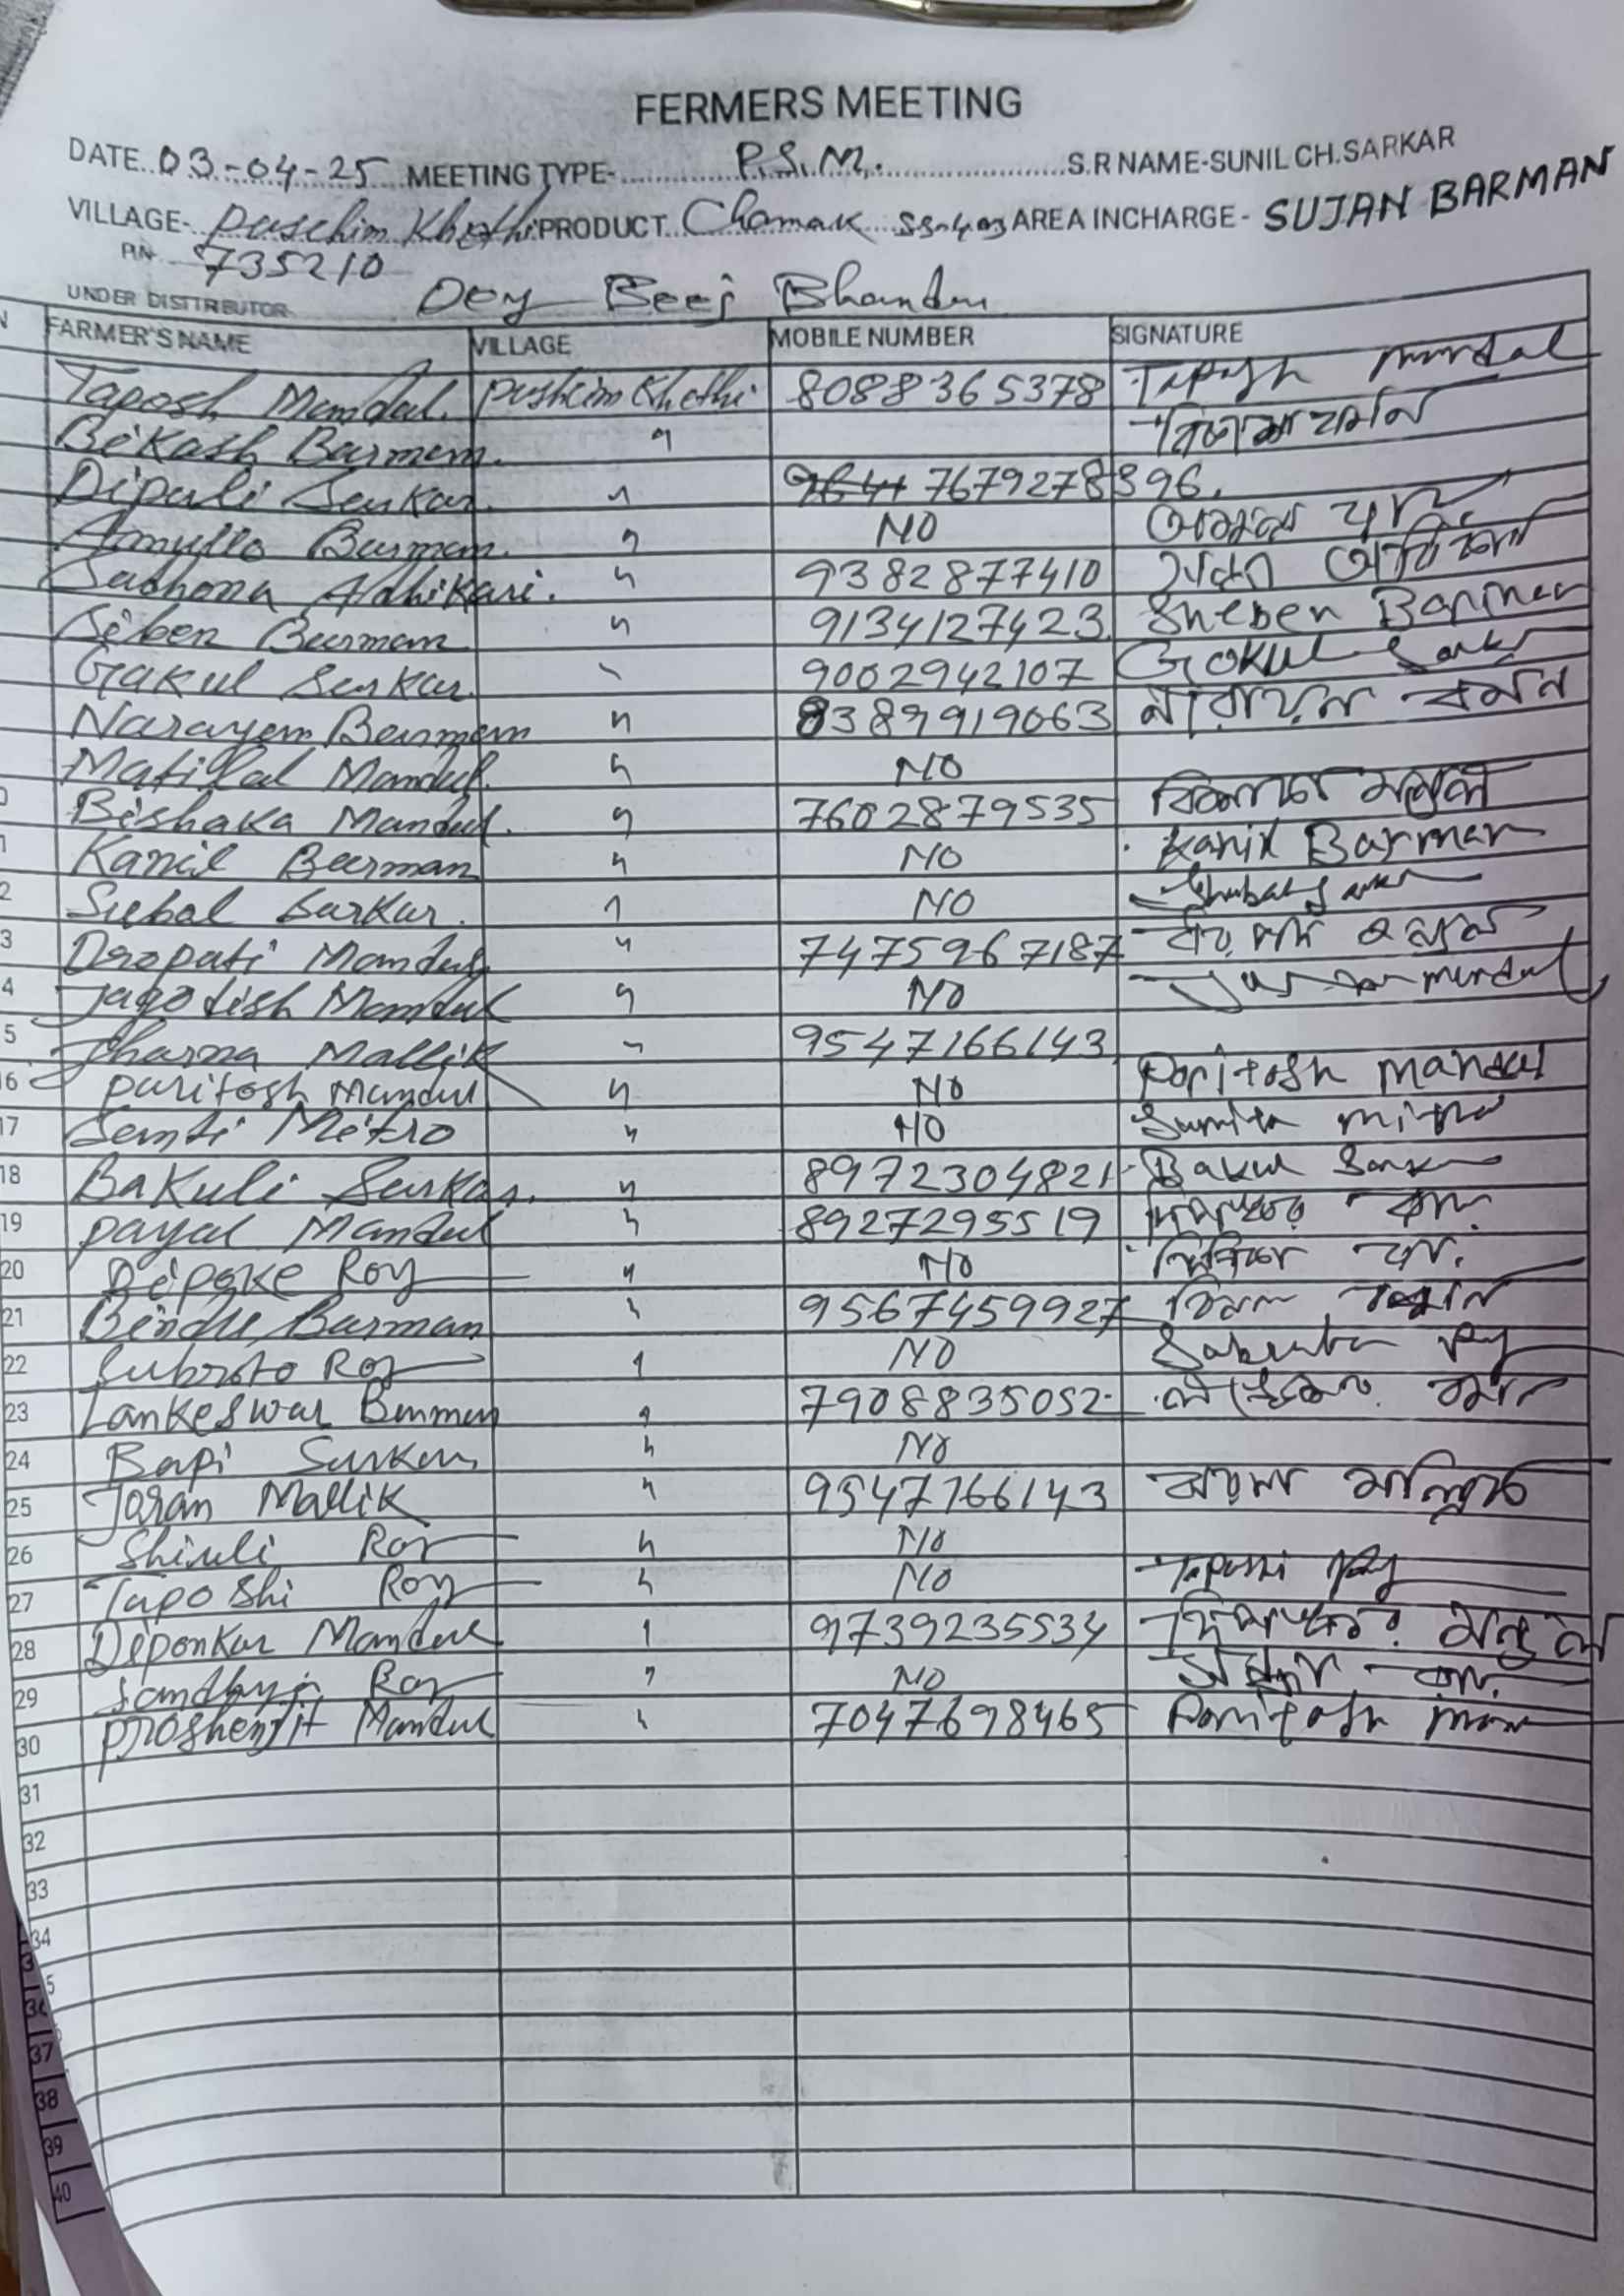 FERMERS MEETING
DATE. 03-04-25 MEETING TYPE- P.S.M. S.R NAME-SUNIL CH.SARKAR
VILLAGE- Paschim Khethi PRODUCT Chamak SS-403 AREA INCHARGE - SUJAN BARMAN
PIN 735210
UNDER DISTTRIBUTOR Dey Beej Bhandar
N FARMER'S NAME VILLAGE MOBILE NUMBER SIGNATURE
Taposh Mandal. Pashcim Khethi 8088365378 Taposh mondal
Bikash Barman. "
Dipali Sarkar. " 7679278396.
Amullo Barman. " NO
Sadhona Adhikari. " 9382877410
Siben Barman " 9134127423 Sheben Barman
Gakul Sarkar. " 9002942107 Gokul Sarkar
Narayan Barman " 8389919063 নারায়ন বর্মন
Matilal Mandal. " NO
0 Bishaka Mandal. " 7602879535
1 Kanil Barman " NO Kanil Barman
2 Subal Sarkar. " NO
3 Dropati Mandal " 7475967187
4 Jagotish Mandal " NO
5 Jharna Mallik " 9547166143
16 Paritosh Mandal " NO Paritosh Mandal
17 Semti Mitro " NO Sumita mitra
18 Bakuli Sarkar. " 8972304821 Bakul Sarkar
19 Payal Mandal " 8927295519
20 Dipoke Roy " NO
21 Bindu Barman " 9567459927
22 Subroto Roy " NO
23 Lankeswar Barman " 7908835052
24 Bapi Sarkar " NO
25 Joran Mallik " 9547166143 ঝরনা মল্লিক
26 Shiuli Roy " NO
27 Taposhi Roy " NO Taposhi Roy
28 Diponkar Mandal " 9739235534 দিপংকর মন্ডল
29 Sandhya Roy " NO
30 Proshenjit Mandal " 7047698465
31
32
33
34
35
36
37
38
39
40